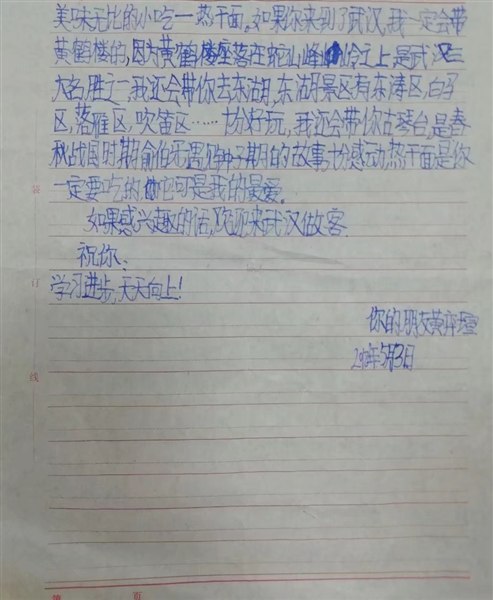 美味无比的小吃一热干面。如果你来到了武汉,我一定会带
黄鹤楼的,因为黄鹤楼座落在蛇山峰岭之上是武汉三
大名胜之一,我还会带你去东湖,东湖景区有东涛区,白马
区,落雁区,吹笛区……十分好玩,我还会带你古琴台,是春
秋战国时期俞伯牙遇钟子期的故事,十分感动,热干面是你
一定要吃的,它可是我的最爱。
如果感兴趣的话,欢迎来武汉做客.
祝你:
学习进步,天天向上!
你的朋友黄弈
年5月3日
装
订
线
第 页